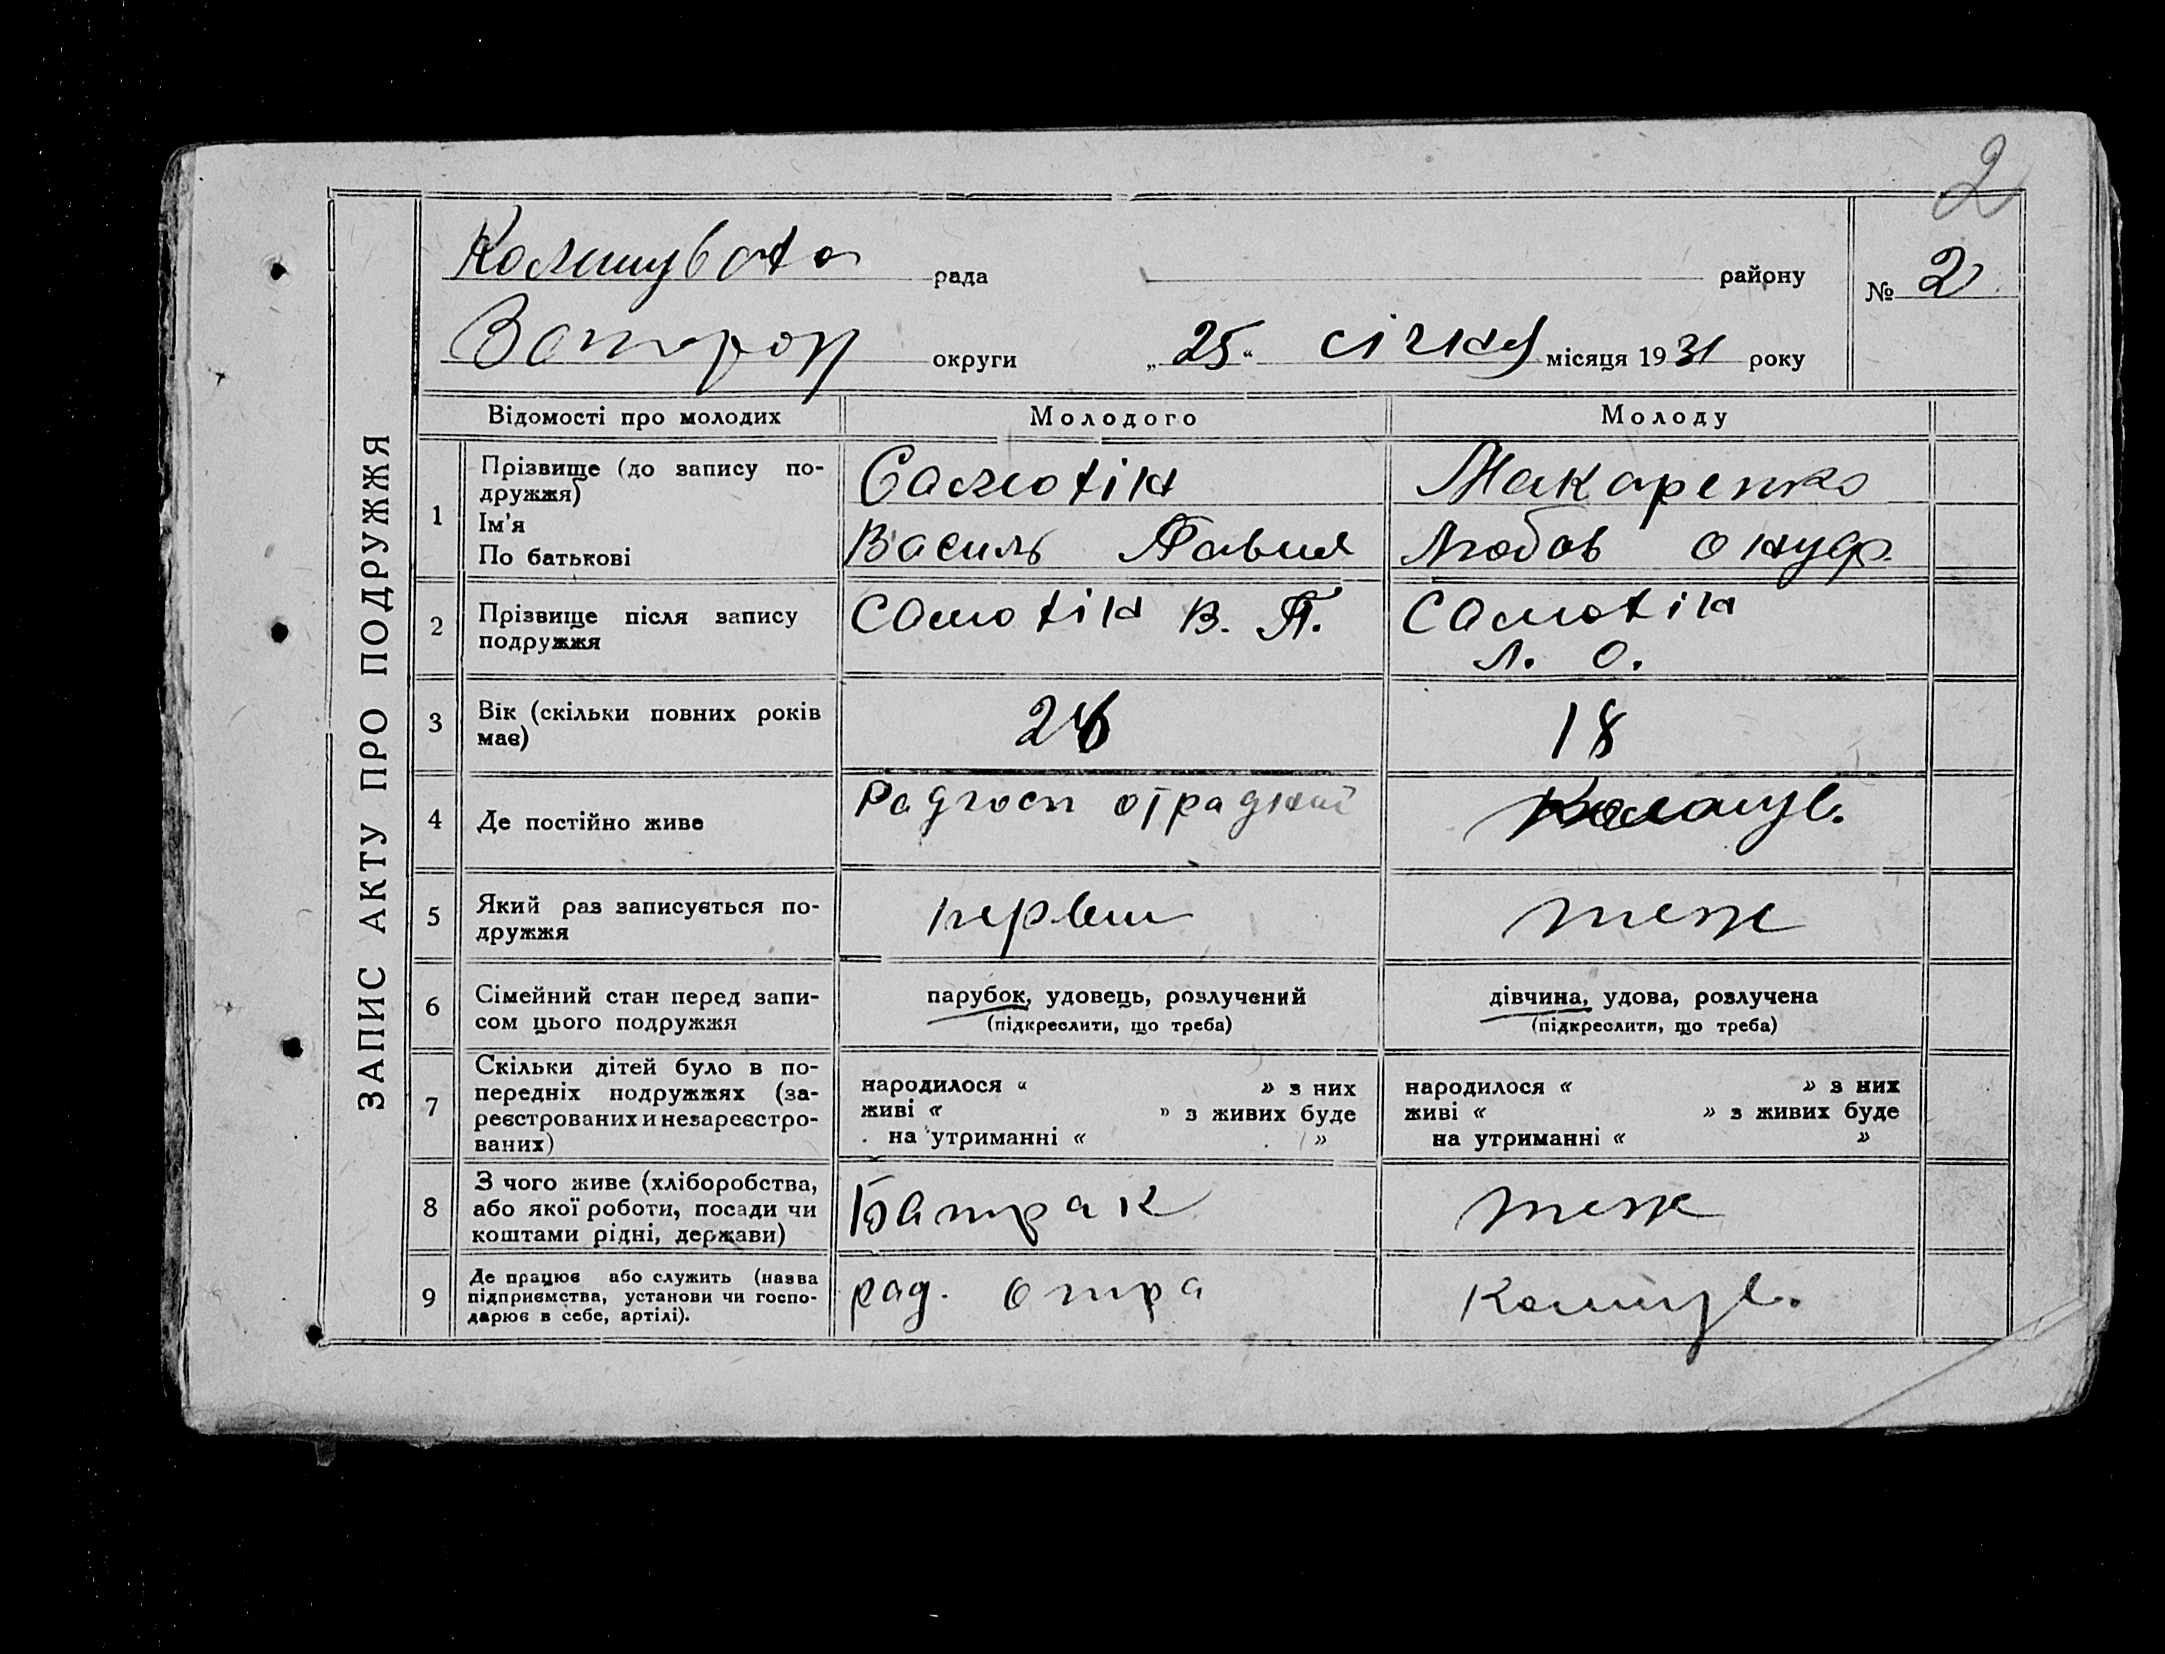 2
ЗАПИС АКТУ ПРО ПОДРУЖЖЯ
Комишувата рада району № 2
Запороз округи „25“ січня місяця 1931 року
Відомості про молодих Молодого Молоду
1 Прізвище (до запису по-
дружжя) Самотін Макаренко
Ім'я
По батькові Василь Павил Любов онуф.
2 Прізвище після запису
подружжя Самотін В. П. Самотін
Л. О.
3 Вік (скільки повних років
має) 18
4 Де постійно живе Радгосп отрадний Комишув.
5 Який раз записується по-
дружжя первш теж
6 Сімейний стан перед запи-
сом цього подружжя парубок, удовець, розлучений дівчина, удова, розлучена
(підкреслити, що треба) (підкреслити, що треба)
7 Скільки дітей було в по-
передніх подружжях (за-
реєстрованих и незареєстро-
ваних)
народилося « » з них народилося « » з них
живі « » з живих буде живі « » з живих буде
на утриманні « » на утриманні « »
8 З чого живе (хліборобства,
або якої роботи, посади чи
коштами рідні, держави) Батрак теж
9 Де працює або служить (назва
підприємства, установи чи госпо-
дарює в себе, артілі). рад. отра Комишув.